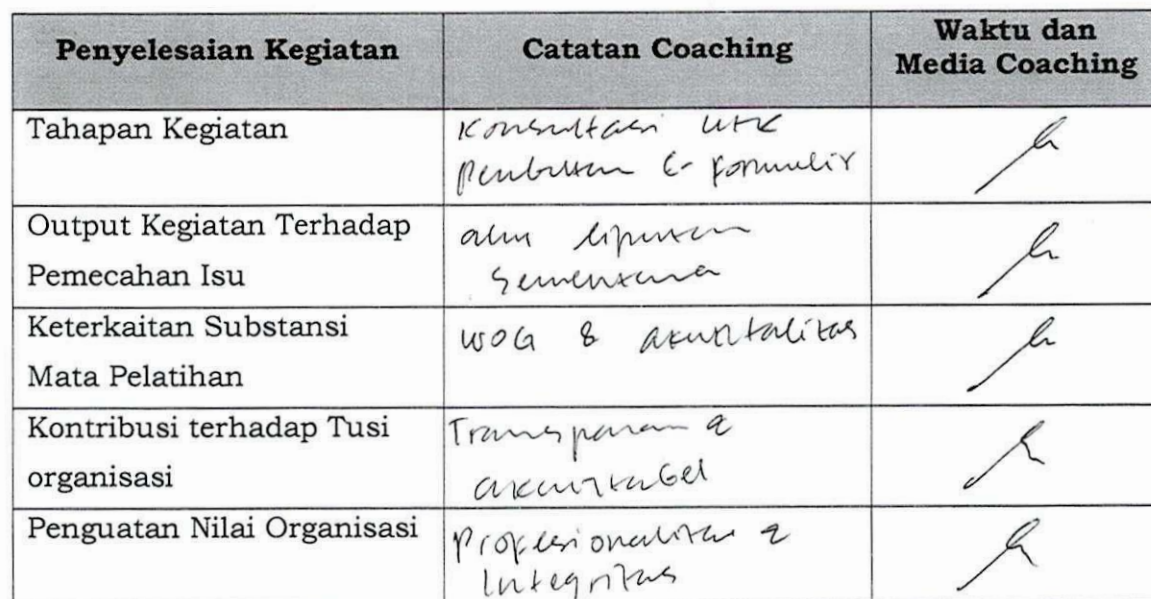 Penyelesaian Kegiatan
Catatan Coaching
Waktu dan
Media Coaching
Tahapan Kegiatan
Konsultasi utk
Pembuatan E-formulir
Output Kegiatan Terhadap
Pemecahan Isu
liputan
Sementara
Keterkaitan Substansi
Mata Pelatihan
WOG & akuntalitas
Kontribusi terhadap Tusi
organisasi
Transparan &
akuntabel
Penguatan Nilai Organisasi
Profesionalitas &
Integritas